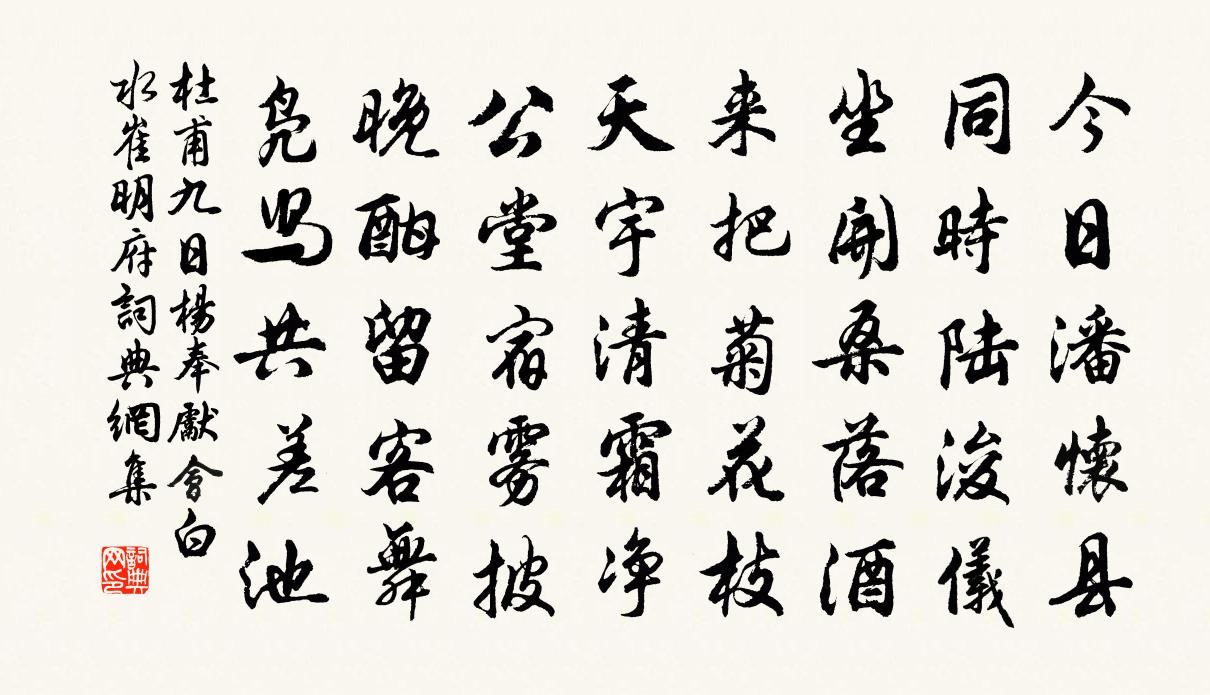 今日潘懷县
同時陆浚儀
坐開桑落酒
来把菊花枝
天宇清霜净
公堂宿雾披
晚酣留客舞
凫舄共差池
杜甫九日楊奉獻會白
水崔明府詞典網集
詞典
网印